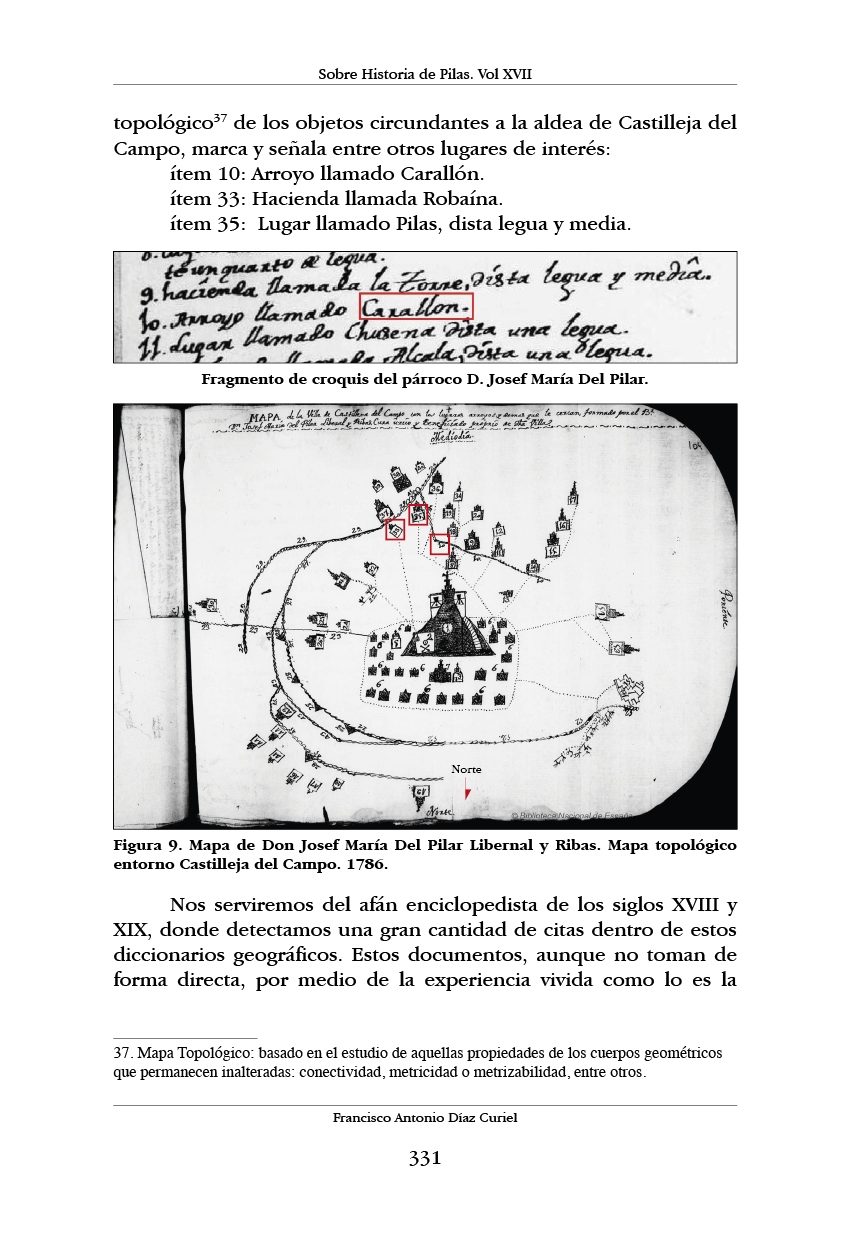 Sobre Historia de Pilas. Vol XVII
topológico37 de los objetos circundantes a la aldea de Castilleja del
Campo, marca y señala entre otros lugares de interés:
ítem 10: Arroyo llamado Carallón.
ítem 33: Hacienda llamada Robaína.
ítem 35: Lugar llamado Pilas, dista legua y media.
te un quarto de legua.
9. hacienda llamada la Torre, dista legua y media.
10. Arroyo llamado Carallon.
11. Lugar llamado Chusena dista una legua.
llamado Alcala, dista una legua.
Fragmento de croquis del párroco D. Josef María Del Pilar.
MAPA de la Villa de Castilleja del Campo con los lugares arroyos y demas que la cercan, formado por el
Josef Maria del Pilar Libernal y Ribas Cura y beneficiado proprio de dha Villa
Mediodia
Poniente
Norte
Norte
© Biblioteca Nacional de España
Figura 9. Mapa de Don Josef María Del Pilar Libernal y Ribas. Mapa topológico
entorno Castilleja del Campo. 1786.
Nos serviremos del afán enciclopedista de los siglos XVIII y
XIX, donde detectamos una gran cantidad de citas dentro de estos
diccionarios geográficos. Estos documentos, aunque no toman de
forma directa, por medio de la experiencia vivida como lo es la
37. Mapa Topológico: basado en el estudio de aquellas propiedades de los cuerpos geométricos
que permanecen inalteradas: conectividad, metricidad o metrizabilidad, entre otros.
Francisco Antonio Díaz Curiel
331